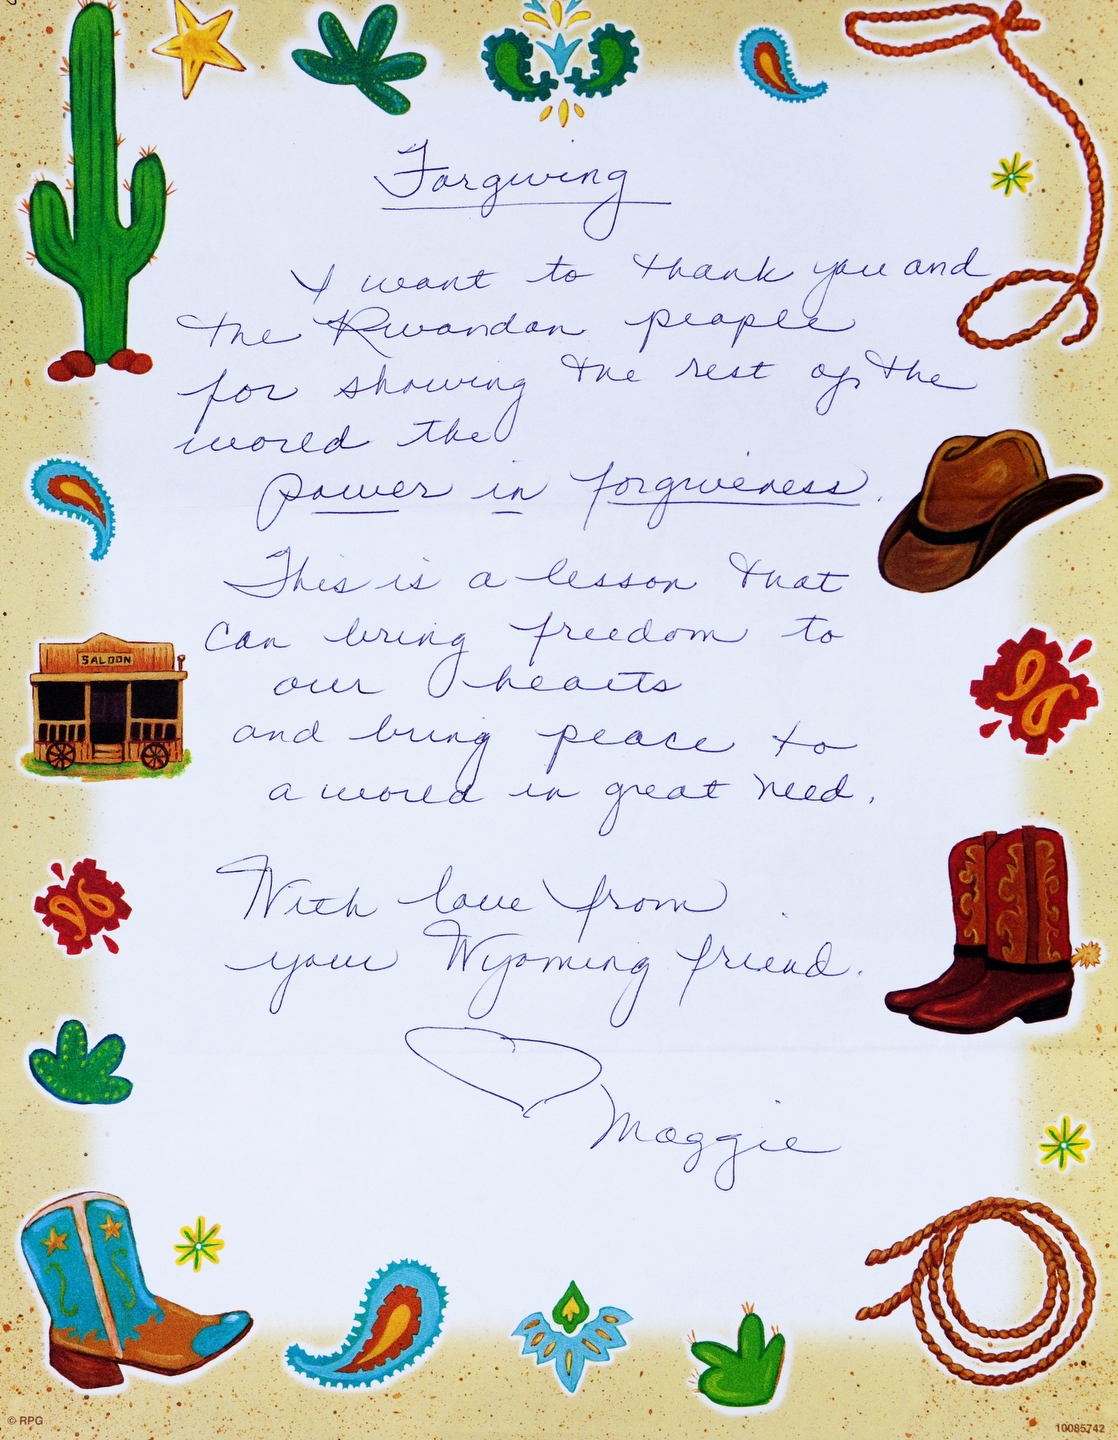 Forgiving
I want to thank you and
the Rwandan people
for showing the rest of the
world the
power in forgiveness.
This is a lesson that
can bring freedom to
our hearts
and bring peace to
a world in great need.
With love from
your Wyoming friend.
Maggie
SALOON
© RPG
10085742